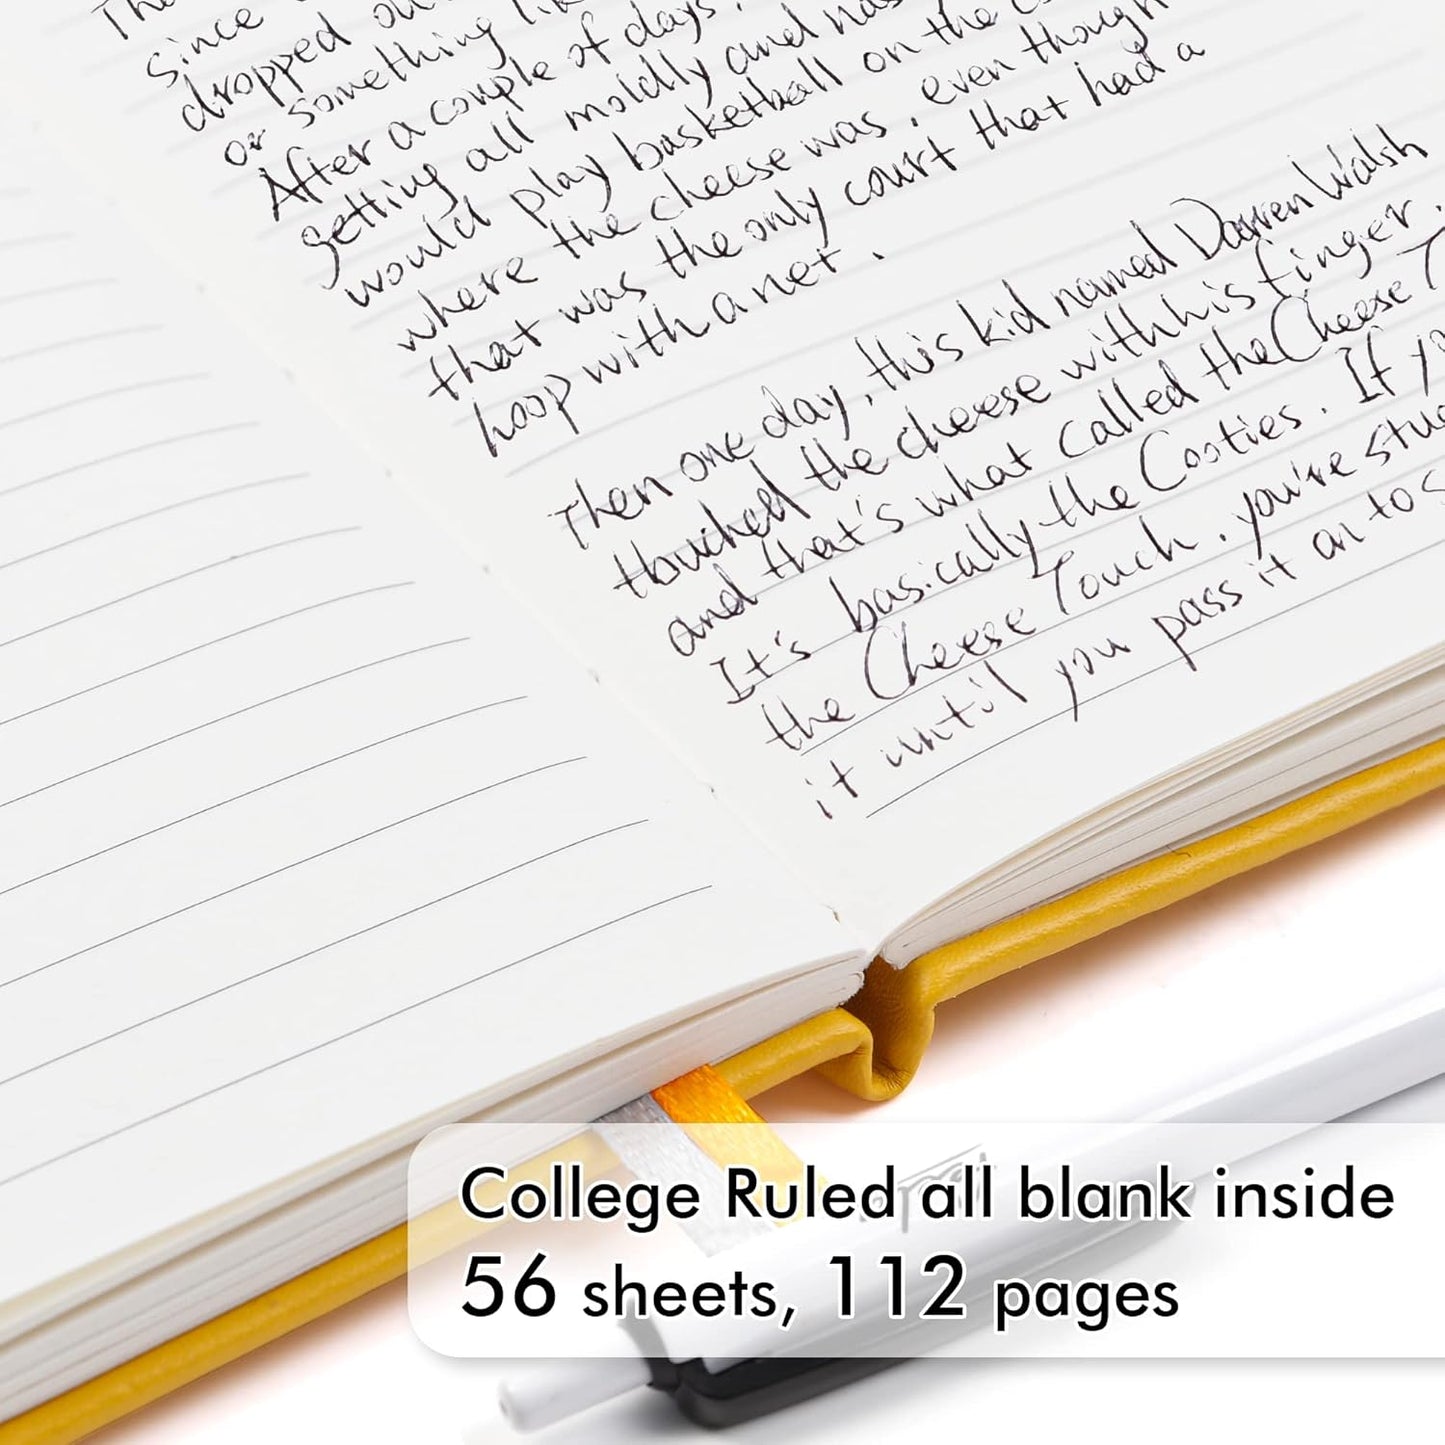 Tha
since
dropped on
or something li
After a couple of days,
getting all moldly and nas
would play basketball on the c
where the cheese was, even though
that was the only court that had a
hoop with a net.
Then one day, this kid named Darren Walsh
touched the cheese with his finger.
and that's what called the Cheese T
It's basically the Cooties. If yo
the Cheese Touch, you're stuc
it until you pass it on to s
College Ruled all blank inside
56 sheets, 112 pages